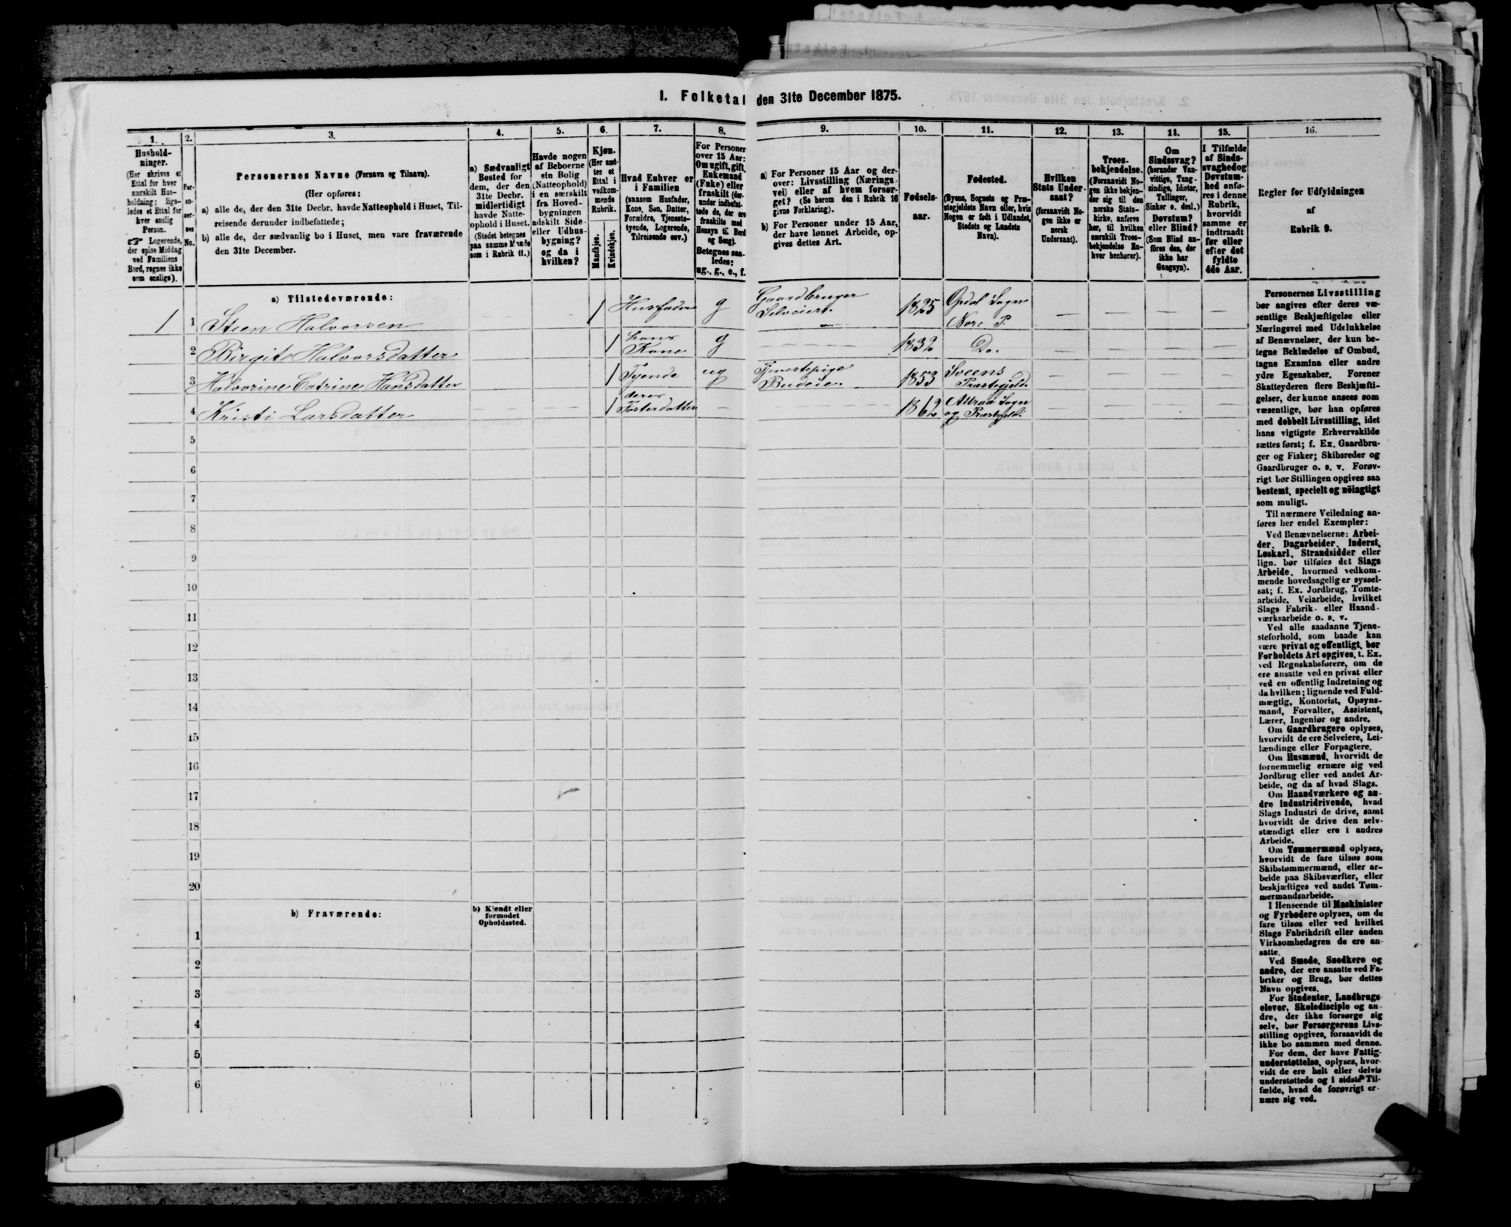 1. Folketal den 31te December 1875.
1. 2. 3. 4. 5. 6. 7. 8. 9. 10. 11. 12. 13. 14. 15. 16.
Hushold-
ninger.
(Her skrives et
Ettal for hver
særskilt Hus-
holdning; lige-
ledes et Ettal for
hver enslig
Person.
Logerende,
der spise Middag
ved Familiens
Bord, regnes ikke
som enslige).
Per-
so-
ner-
nes
No.
Personernes Navne (Fornavn og Tilnavn).
(Her opføres:
a) alle de, der den 31te Decbr. havde Natteophold i Huset, Til-
reisende derunder indbefattede;
b) alle de, der sædvanlig bo i Huset, men vare fraværende
den 31te December.
a) Sædvanligt
Bosted for
dem, der den
31te Decbr.
midlertidigt
havde Natte-
ophold i Huset.
(Stedet betegnes
paa samme Maade
som i Rubrik 11.)
Havde nogen
af Beboerne
sin Bolig
(Natteophold)
i en særskilt
fra Hoved-
bygningen
adskilt Side-
eller Udhus-
bygning?
og da i
hvilken?
Kjøn.
(Her sæt-
tes et
Ettal i
vedkom-
mende
Rubrik.
Mandkjøn.
Kvindekjøn.
Hvad Enhver er
i Familien
(saasom Husfader,
Kone, Søn, Datter,
Forældre, Tjeneste-
tyende, Logerende,
Tilreisende osv.)
For Personer
over 15 Aar:
Om ugift, gift,
Enkemand
(Enke) eller
fraskilt (der-
under indbefat-
tede de, der ere
fraskilte med
Hensyn til Bord
og Seng).
Betegnes saa-
ledes:
ug., g., e., f.
a) For Personer 15 Aar og der-
over: Livsstilling (Nærings-
vei) eller af hvem forsør-
get? (Se herom den i Rubrik 16
givne Forklaring).
b) For Personer under 15 Aar,
der have lønnet Arbeide, op-
gives dettes Art.
Fødsels-
aar.
Fødested.
(Byens, Sognets og Præ-
stegjeldets Navn eller, hvis
Nogen er født i Udlandet,
Stedets og Landets
Navn).
Hvilken
Stats Under-
saat?
(forsaavidt No-
gen ikke er
norsk
Undersaat).
Troes-
bekjendelse.
(Forsaavidt No-
gen ikke bekjen-
der sig til den
norske Stats-
kirke, anføres
her, til hvilken
særskilt Troes-
bekjendelse En-
hver henhører).
Om
Sindssvag?
(herunder Van-
vittige, Tung-
sindige, Idioter,
Tullinger,
Sinker o. desl.)
Døvstum?
eller Blind?
(Som Blind an-
føres den, der
ikke har
Gangsyn).
I Tilfælde
af Sinds-
svaghed og
Døvstum-
hed anfø-
res i denne
Rubrik,
hvorvidt
samme er
indtraadt
før eller
efter det
fyldte
4de Aar.
Regler for Udfyldningen
af
Rubrik 9.
a) Tilstedeværende:
1 1 Steen Halvorsen — — 1 Husfader g Gaardbruger Selveier. 1825 Opdal Sogn Nore P. — — — —
2 Birgit Halvorsdatter 1 hans Kone g — 1832 Do. — — — —
3 Halvorine Catrine Hansdatter 1 Tyende ug Tjenestepige Budeie. 1853 Sveens Præstegjeld. — — — —
4 Kristi Larsdatter 1 deres Fosterdatter — — 1862 Attraa Sogn og Præstegjeld. — — — —
5
6
7
8
9
10
11
12
13
14
15
16
17
18
19
20
b) Fraværende:
b) Kjendt eller
formodet
Opholdssted.
1
2
3
4
5
6
Personernes Livsstilling
bør angives efter deres væ-
sentlige Beskjæftigelse eller
Næringsvei med Udelukkelse
af Benævnelser, der kun be-
tegne Beklædelse af Ombud,
tagne Examina eller andre
ydre Egenskaber. Forener
Skatteyderen flere Beskjæfti-
gelser, der kunne ansees som
væsentlige, bør han opføres
med dobbelt Livsstilling, idet
hans vigtigste Erhvervskilde
sættes først; f. Ex. Gaardbru-
ger og Fisker; Skibsreder og
Gaardbruger o. s. v. Forøv-
rigt bør Stillingen opgives saa
bestemt, specielt og nöiagtigt
som muligt.
Til nærmere Veiledning an-
føres her endel Exempler:
Ved Benævnelserne: Arbei-
der, Dagarbeider, Inderst,
Løskarl, Strandsidder eller
lign. bør tilføies det Slags
Arbeide, hvormed vedkom-
mende hovedsagelig er syssel-
sat; f. Ex. Jordbrug, Tomte-
arbeide, Veiarbeide, hvilket
Slags Fabrik- eller Haand-
værksarbeide o. s. v.
Ved alle saadanne Tjene-
steforhold, som baade kan
være privat og offentligt, bør
Forholdets Art opgives, t. Ex.
ved Regnskabsførere, om de
ere ansatte ved en privat eller
ved en offentlig Indretning og
da hvilken; lignende ved Fuld-
mægtig, Kontorist, Opsyns-
mand, Forvalter, Assistent,
Lærer, Ingeniør og andre.
Om Gaardbrugere oplyses,
hvorvidt de ere Selveiere, Lei-
lændinge eller Forpagtere.
Om Husmænd, hvorvidt de
fornemmelig ernære sig ved
Jordbrug eller ved andet Ar-
beide, og da af hvad Slags.
Om Haandværkere og an-
dre industridrivende, hvad
Slags Industri de drive, samt
hvorvidt de drive den selv-
stændigt eller ere i andres
Arbeide.
Om Tømmermænd oplyses,
hvorvidt de fare tilsøs som
Skibstømmermænd, eller ar-
beide paa Skibsværfter, eller
beskjæftiges ved andet Tøm-
mermandsarbeide.
I Henseende til Maskinister
og Fyrbødere oplyses, om de
fare tilsøs eller ved hvilket
Slags Fabrikdrift eller anden
Virksomhedsgren de ere an-
satte.
Ved Smede, Snedkere og
andre, der ere ansatte ved Fa-
briker og Brug, bør dettes
Navn opgives.
For Studenter, Landbrugs-
elever, Skoledisciple og an-
dre, der ikke forsørge sig
selv, bør Forsørgerens Livs-
stilling opgives, forsaavidt de
ikke bo sammen med denne.
For dem, der have Fattig-
understøttelse, oplyses, hvor-
vidt de ere helt eller delvis
understøttede og i sidste Til-
fælde, hvad de forøvrigt er-
nære sig ved.